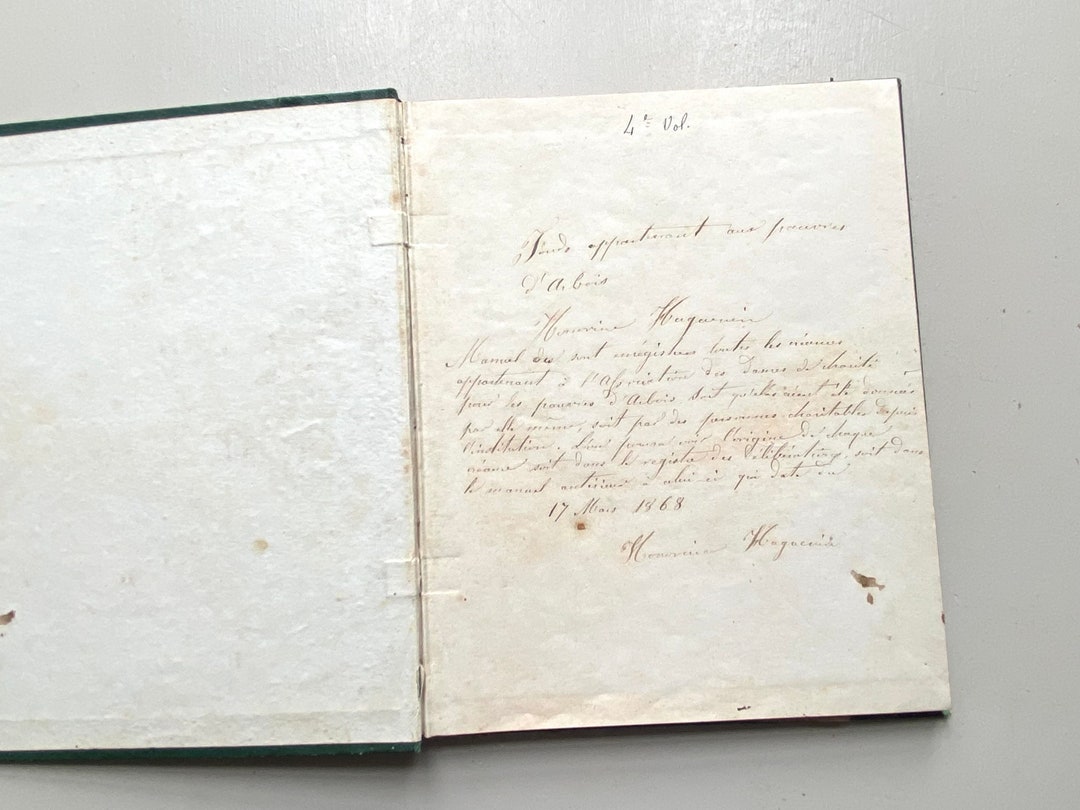 4e Vol.
Fonds appartenant aux pauvres
d'Arbois
Honorine Huguenin
Manuel où sont enrégistrées toutes les créances
appartenant à l'Association des Dames de charité
pour les pauvres d'Arbois soit qu'elles aient été données
par elle même, soit par des personnes charitables depuis
l'institution. L'on pourra voir l'origine de chaque
créance soit dans le registre des délibérations, soit dans
le manuel antérieur à celui ci qui date du
17 Mars 1868
Honorine Huguenin